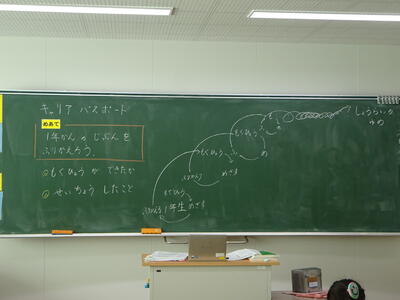 キャリア パスポート
めあて
1年かんのじぶんを
ふりかえろう。
もくひょうができたか
せいちょうしたこと
しょうらいの
ゆめ
も
もくひょう
め
もくひょう
ふりかえり
めざす
もくひょう
ふりかえり 1年生 めざす